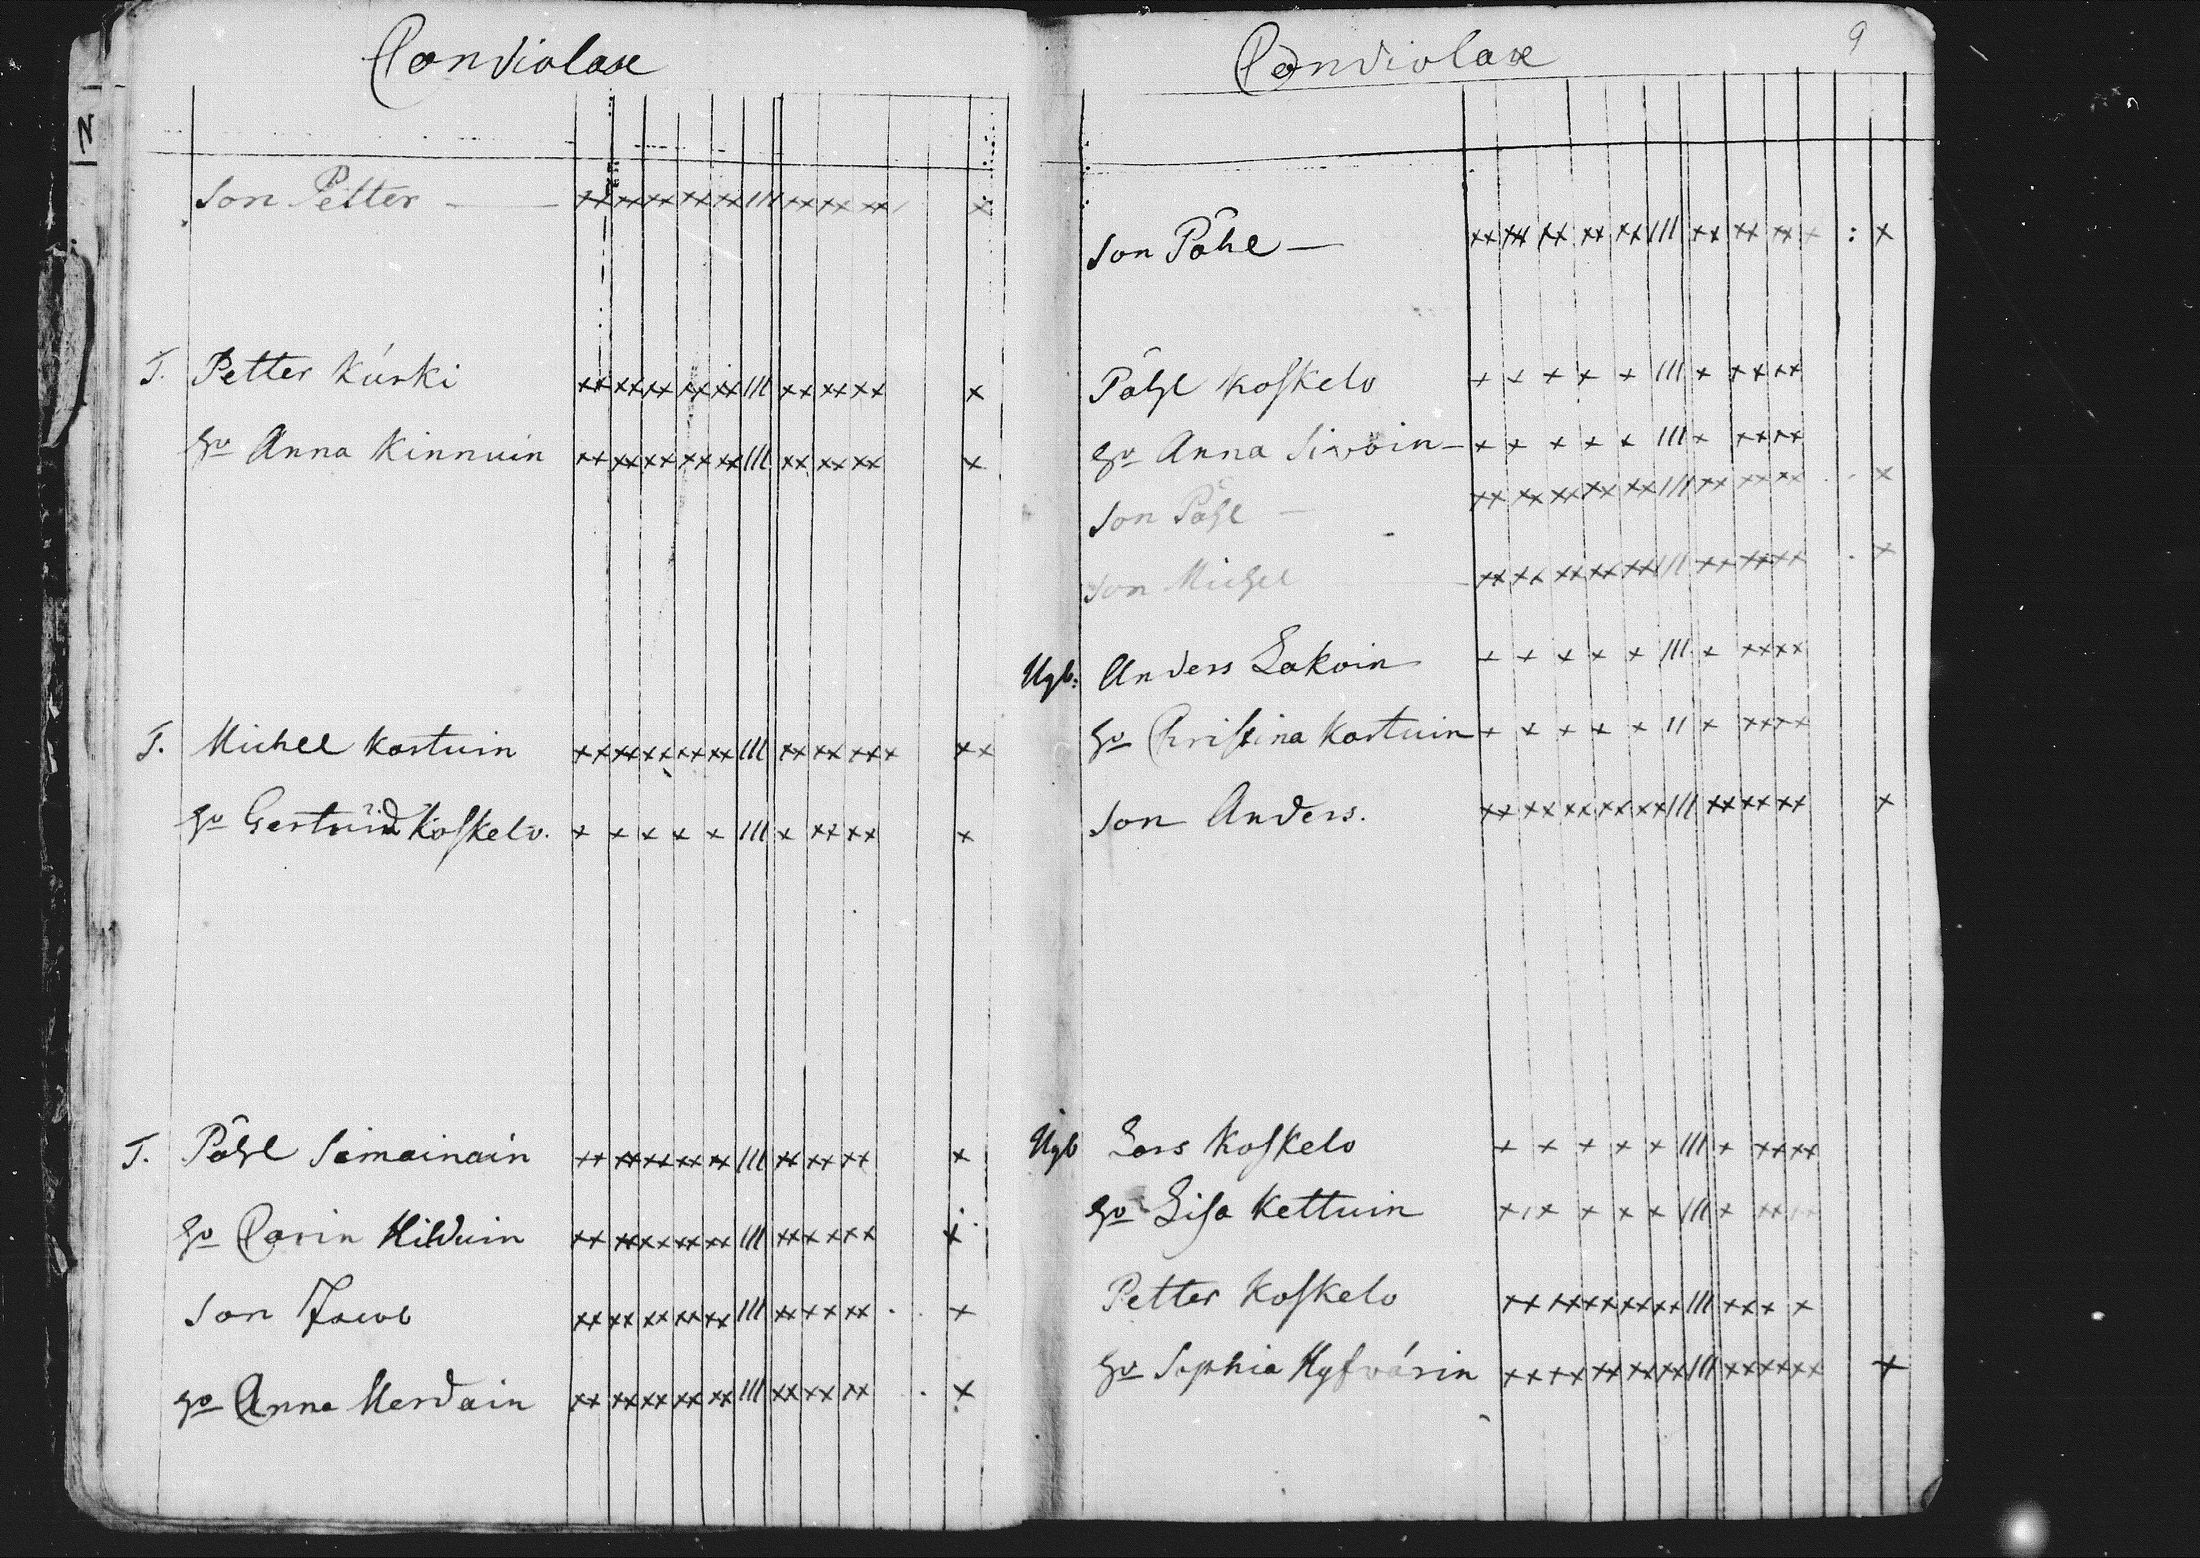 Condiolax
Son Petter
T. Petter Kurki
Hu Anna Kinnuin
T. Michel Kortuin
Hu Gertrud Koskelo.
T. Påhl Simainain
Hu Carin Hilduin
Son Jacob
Hu Anna Merdain
Condiolax 9
Son Påhl
Påhl Koskelo
Hu Anna Sivoin
Son Påhl
Son Michel
Ugb: Anders Lakoin
Hu Christina Kortuin
Son Anders.
Ugb Lars Koskelo
Hu Lisa Kettuin
Petter Koskelo
Hu Sophia Hyfvärin